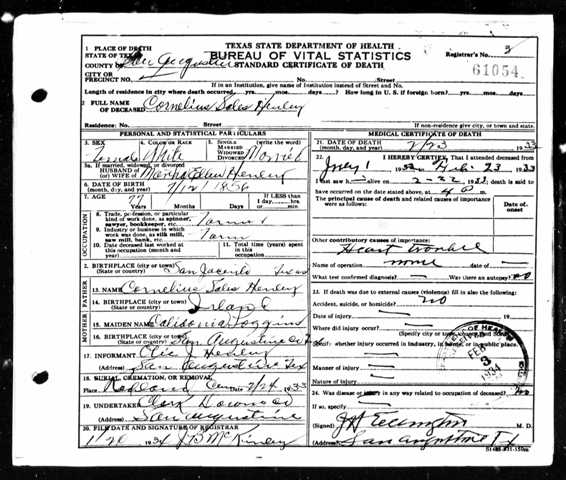 TEXAS STATE DEPARTMENT OF HEALTH
BUREAU OF VITAL STATISTICS
STANDARD CERTIFICATE OF DEATH
1 PLACE OF DEATH
STATE OF TEXAS
COUNTY OF San Augustine
CITY OR
PRECINCT NO.
No. Street
Registrar's No. 3
61054
If in an Institution, give name of Institution instead of Street and No.
Length of residence in city where death occurred yrs. mos. days. How long in U. S. if foreign born? yrs. mos. days.
2 FULL NAME
OF DECEASED Cornelius Sales Henley
Residence: No. Street
If non-residence give city, or town and state.
PERSONAL AND STATISTICAL PARTICULARS
3. SEX
4. COLOR OR RACE White
5. SINGLE
MARRIED
WIDOWED
DIVORCED (write the word) Married
5a. If married, widowed, or divorced
HUSBAND OF
(or) WIFE OF Henley
6. DATE OF BIRTH
(month, day, and year) 7/12/1856
7. AGE 77
YEARS Months Days
If LESS than
1 day hrs.
or min.
OCCUPATION
8. Trade, profession, or particular
kind of work done, as spinner,
sawyer, bookkeeper, etc.
9. Industry or business in which
work was done, as silk mill,
saw mill, bank, etc. Farm
10. Date deceased last worked at
this occupation (month and
year)
11. Total time (years)
spent in this
occupation
12. BIRTHPLACE (city or town) San Jacinto Texas
(State or country)
FATHER
13. NAME Cornelius Sales Henley
14. BIRTHPLACE (city or town)
(State or country)
MOTHER
15. MAIDEN NAME
16. BIRTHPLACE (city or town) San Augustine
(State or country)
17. INFORMANT Henley
(Address) San Augustine Tex
18. BURIAL, CREMATION, OR REMOVAL
Place Cem Date 2/24 1933
19. UNDERTAKER Clark Downs
(Address) San Augustine
20. FILE DATE AND SIGNATURE OF REGISTRAR
1/20 1934 J B McKinley
MEDICAL CERTIFICATE OF DEATH
21. DATE OF DEATH
(month, day, and year) 2/23 1933
22. I HEREBY CERTIFY, That I attended deceased from
to Feb. 23 1933
I last saw h alive on 2-22 1933; death is said to
have occurred on the date stated above, at m.
The principal cause of death and related causes of importance
were as follows:
Date of
onset
Other contributory causes of importance:
Heart trouble
Name of operation none date of
What test confirmed diagnosis? Was there an autopsy? no
23. If death was due to external causes (violence) fill in also the following:
Accident, suicide, or homicide? no
Date of injury 19
Where did injury occur?
Specify whether injury occurred in industry, in home, or in public place.
Manner of injury
Nature of injury
24. Was disease or injury in any way related to occupation of deceased? no
If so, specify
(Signed) M. D.
(Address) San Augustine Tx
FEB
3
1934